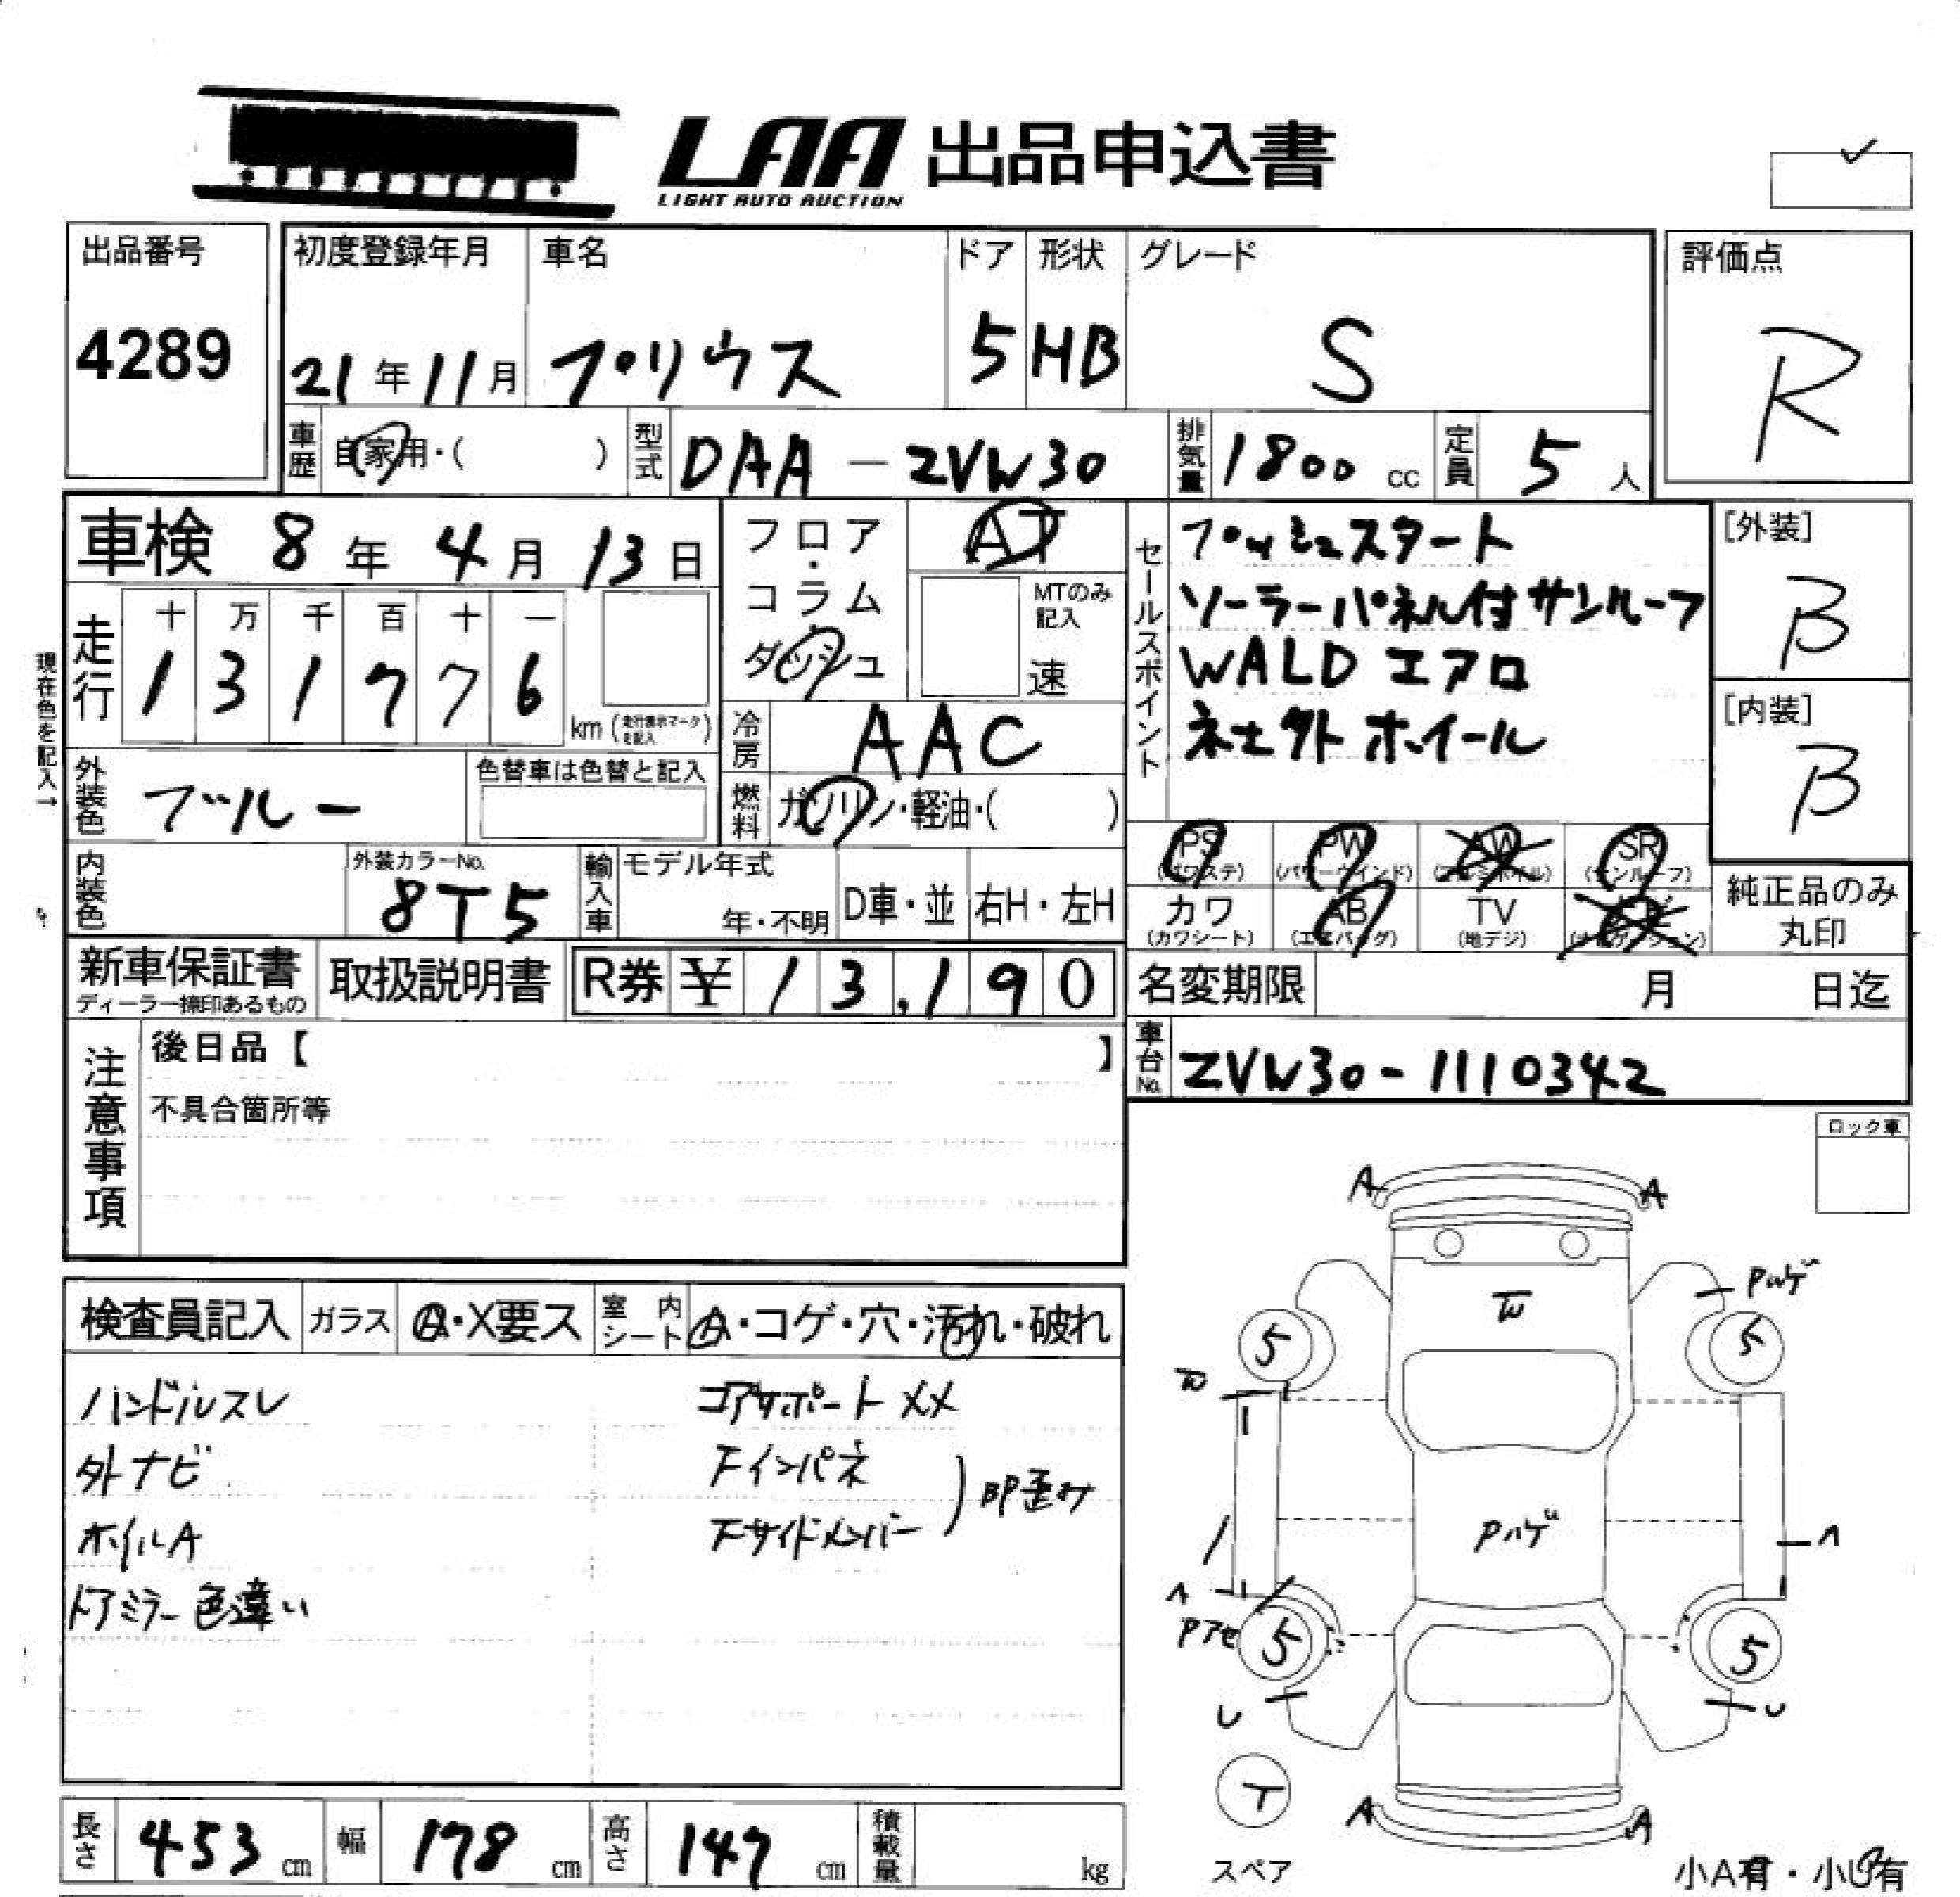 LAA 出品申込書
LIGHT AUTO AUCTION
出品番号
4289
初度登録年月
21年11月
車名
プリウス
ドア
5
形状
HB
グレード
S
評価点
R
車歴
自家用・( )
型式
DAA-ZVW30
排気量
1800 cc
定員
5人
車検 8年4月13日
走行
十 万 千 百 十 一
1 3 1 7 7 6
km (走行表示マークを記入)
現在色を記入→
外装色
ブルー
色替車は色替と記入
内装色
外装カラーNo.
8T5
フロア・コラム・ダッシュ
AT
MTのみ記入
速
冷房
AAC
燃料
ガソリン・軽油・( )
輸入車
モデル年式
年・不明
D車・並
右H・左H
セールスポイント
プッシュスタート
ソーラーパネル付サンルーフ
WALD エアロ
社外ホイール
[外装]
B
[内装]
B
PS (パワステ)
PW (パワーウインド)
AW (アルミホイル)
SR (サンルーフ)
カワ (カワシート)
AB (エアバッグ)
TV (地デジ)
ナビ (ナビゲーション)
純正品のみ丸印
新車保証書
ディーラー捺印あるもの
取扱説明書
R券 ¥ 13,190
名変期限 月 日迄
車台No.
ZVW30-1110342
注意事項
後日品【 】
不具合箇所等
ロック車
検査員記入
ガラス
A・X要ス
室内シート
A・コゲ・穴・汚れ・破れ
ハンドルスレ
外ナビ
ホイルA
ドアミラー色違い
コアサポート XX
Fインパネ
Fサイドメンバー
BP歪み
A
A
Pハゲ
W
5
5
W
Pハゲ
Pアセ
5
5
U
U
T
スペア
A
A
小A有・小U有
長さ
453 cm
幅
178 cm
高さ
147 cm
積載量
kg